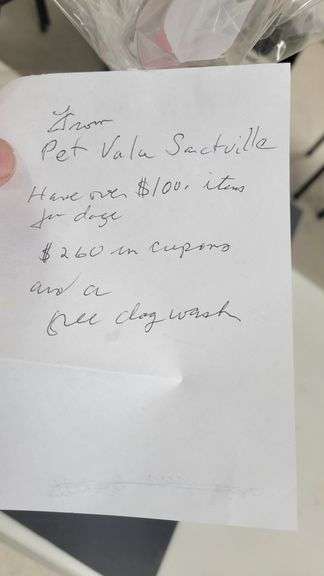 From
Pet Valu Sackville
Have over $100. items
for dogs
$260 in cupons
and a
free dog wash